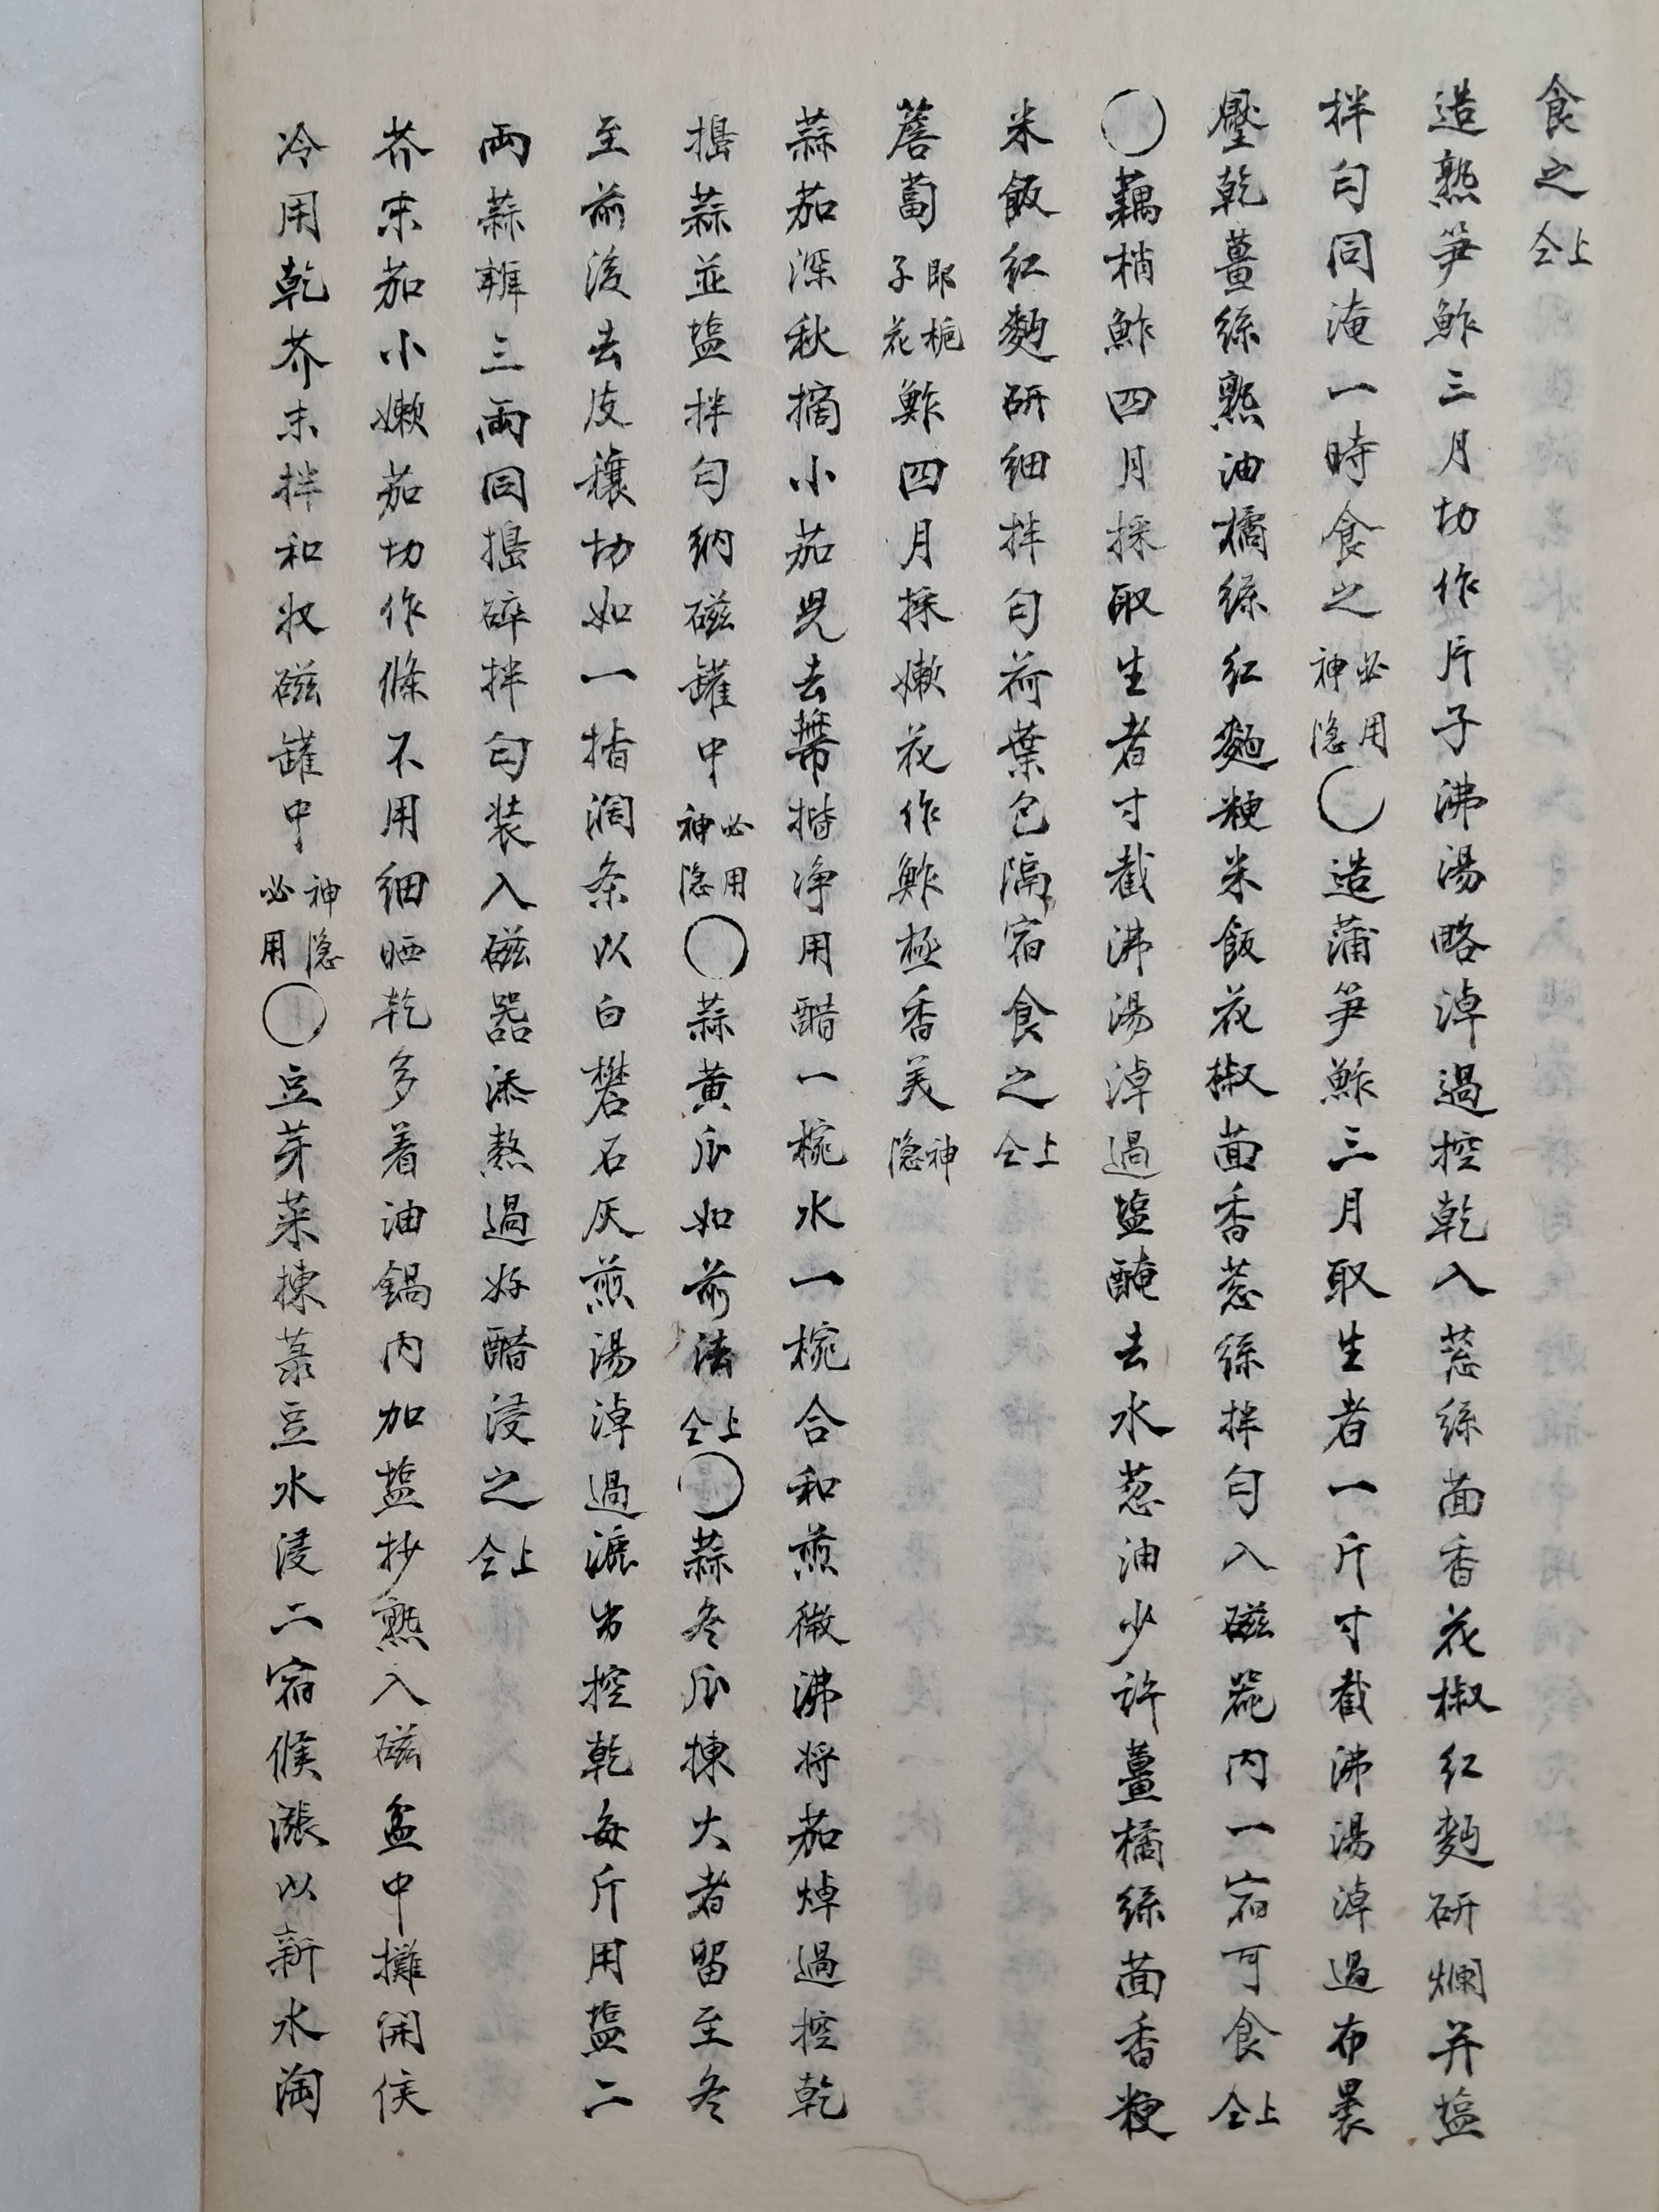 食之 上仝
造熟笋鮓三月切作片子沸湯略淖過控乾入葱絲茴香花椒红麴研爛并塩
拌匀同淹一時食之 必用神隐 ○造蒲笋鮓三月取生者一斤寸截沸湯淖過布褁
壓乾薑絲熟油橘絲红麴粳米飯花椒茴香葱絲拌匀入磁器内一宿可食 上仝
○藕梢鮓四月採取生者寸截沸湯淖過塩醃去水葱油少許薑橘絲茴香粳
米飯红麴研细拌匀荷葉包隔宿食之 上仝
薝蔔 即梔子花 鮓四月採嫰花作鮓極香美 神隐
蒜茄深秋摘小茄児去蔕揩净用醋一椀水一椀合和煎微沸将茄焯過控乾
搗蒜並塩拌匀纳磁罐中 必用神隐 ○蒜黄瓜如前法 上仝 ○蒜冬瓜揀大者留至冬
至前後去皮穰切如一指濶条以白礬石灰煎湯淖過漉出控乾每斤用盐二
兩蒜瓣三兩同搗碎拌匀装入磁器添熬過好醋浸之 上仝
芥末茄小嫰茄切作條不用细晒乾多着油鍋内加盐抄熟入磁盆中攤開侯
冷用乾芥末拌和收磁罐中 神隐必用 ○豆芽菜揀菉豆水浸二宿候漲以新水淘